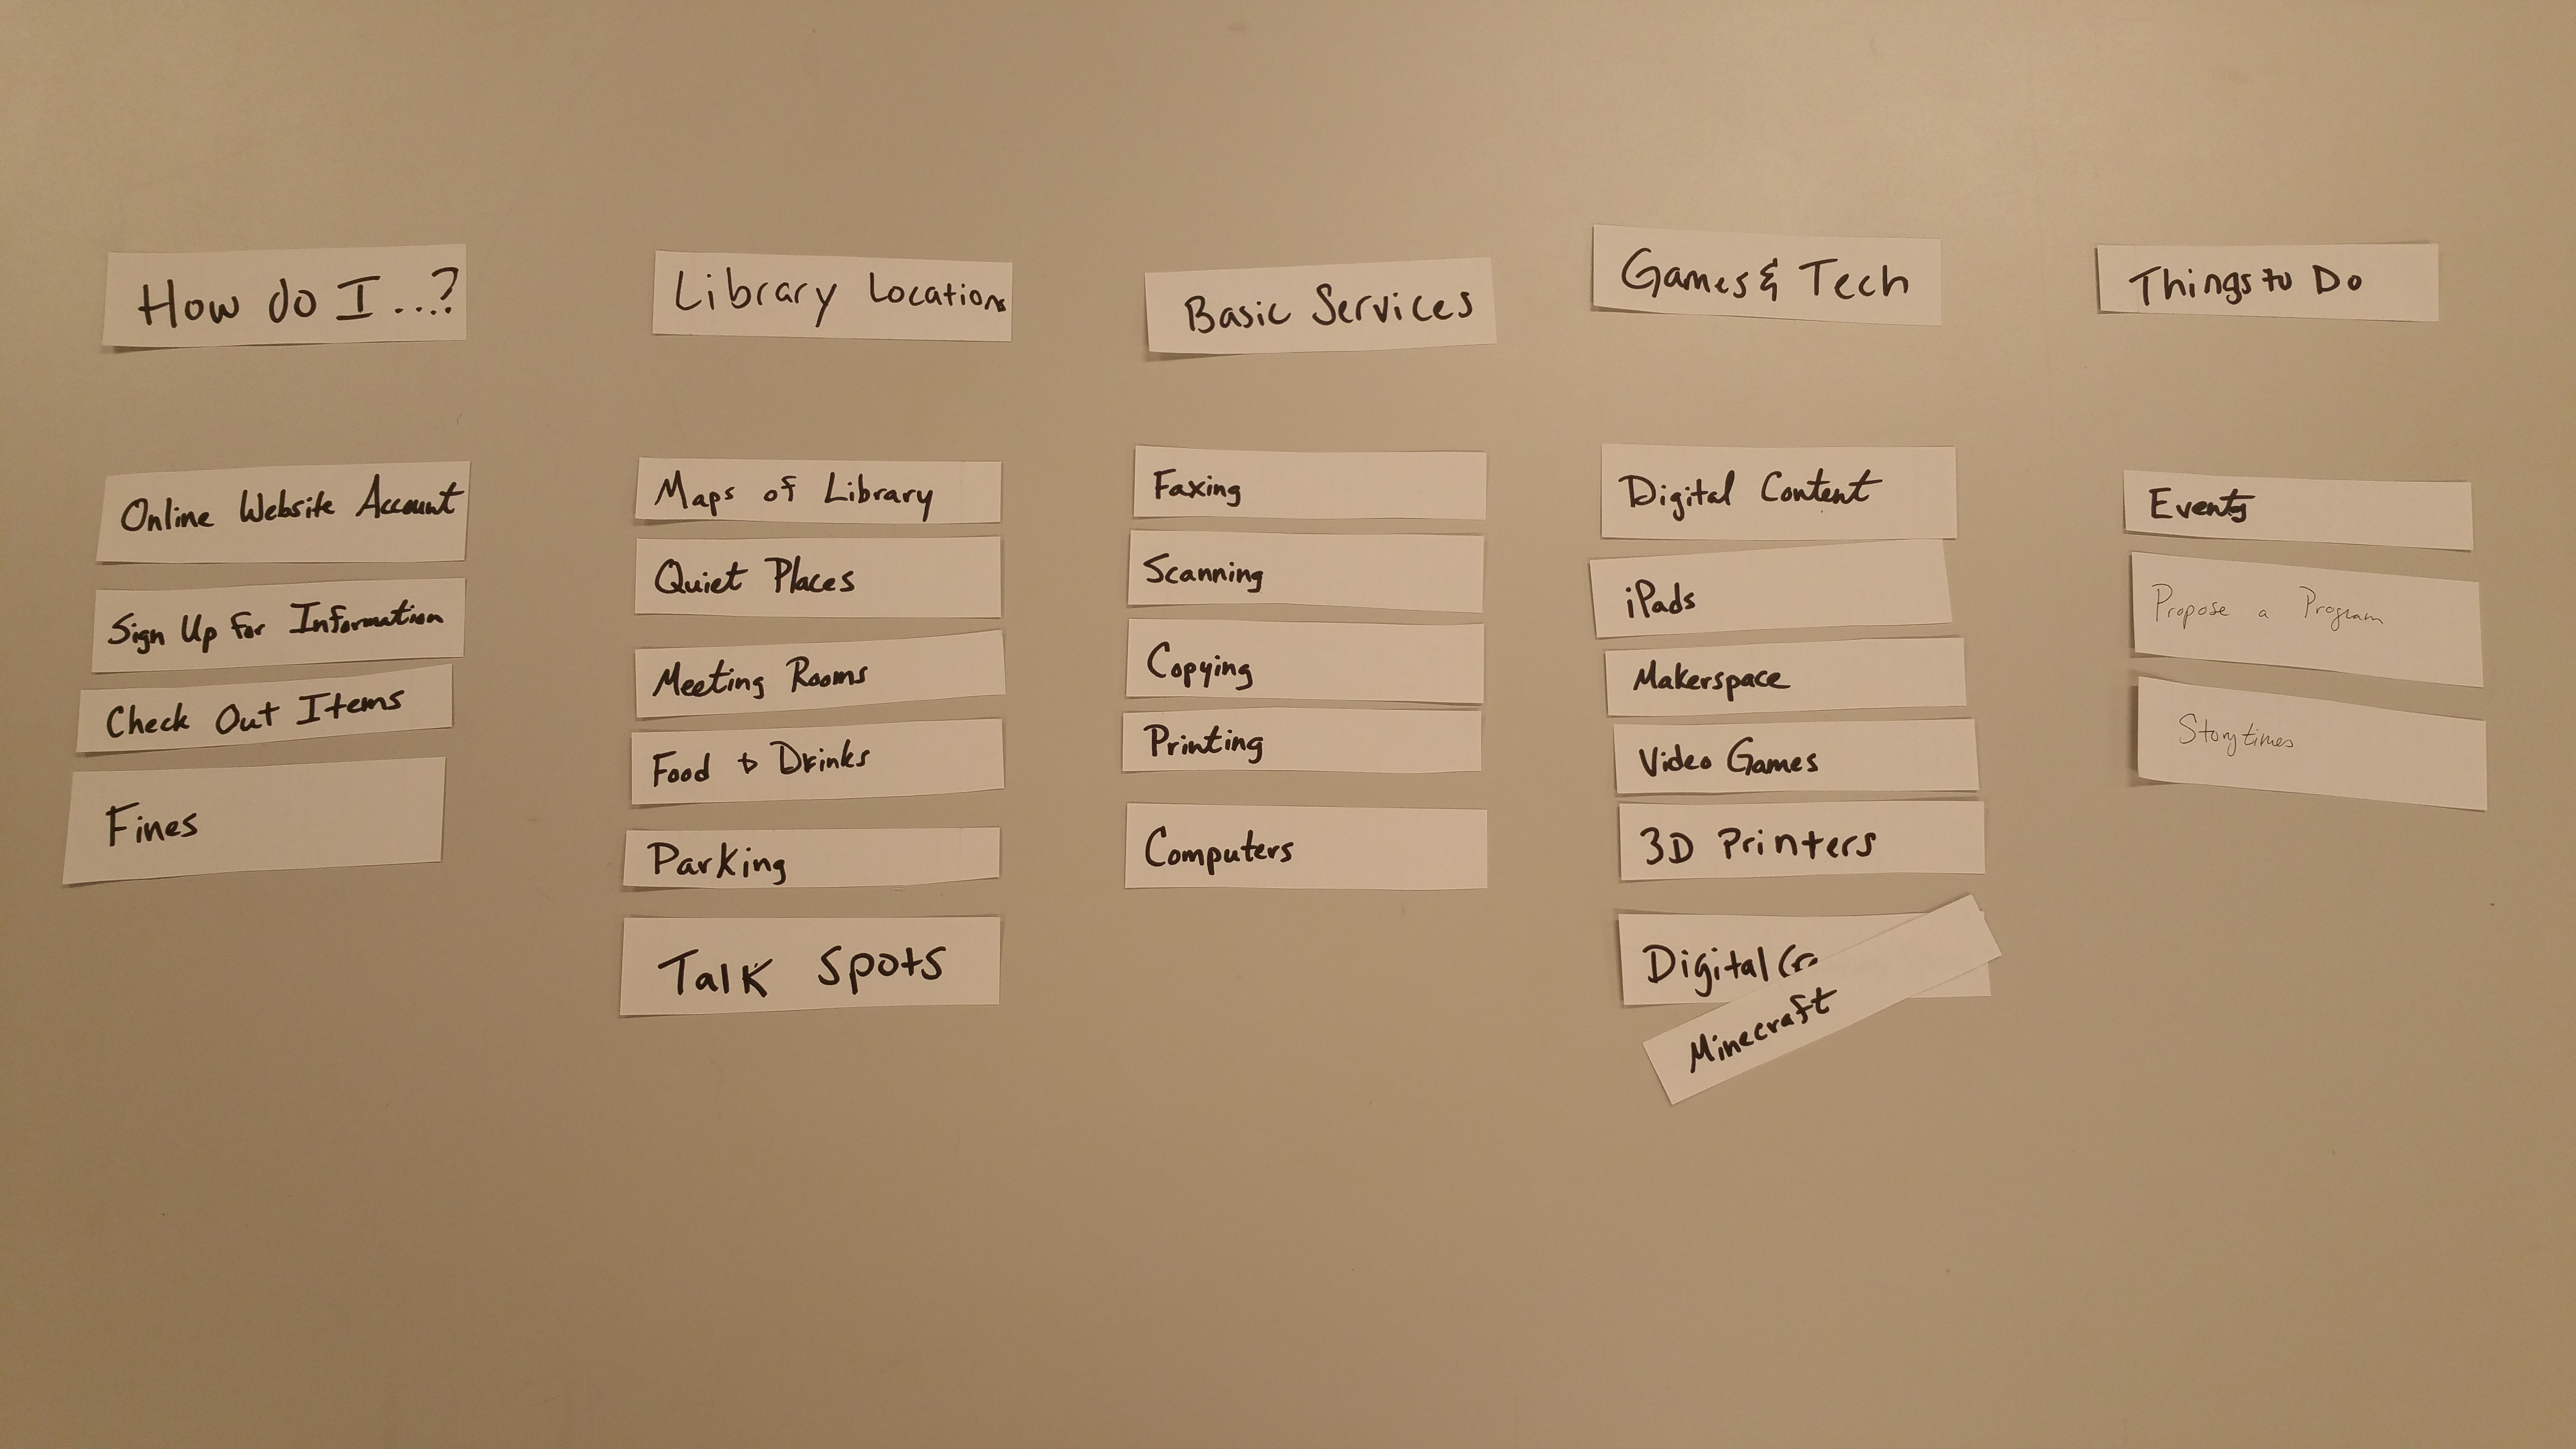 How do I...?
Online Website Account
Sign Up for Information
Check Out Items
Fines
Library Locations
Maps of Library
Quiet Places
Meeting Rooms
Food & Drinks
Parking
Talk Spots
Basic Services
Faxing
Scanning
Copying
Printing
Computers
Games & Tech
Digital Content
iPads
Makerspace
Video Games
3D Printers
Digital
Minecraft
Things to Do
Events
Propose a Program
Storytimes